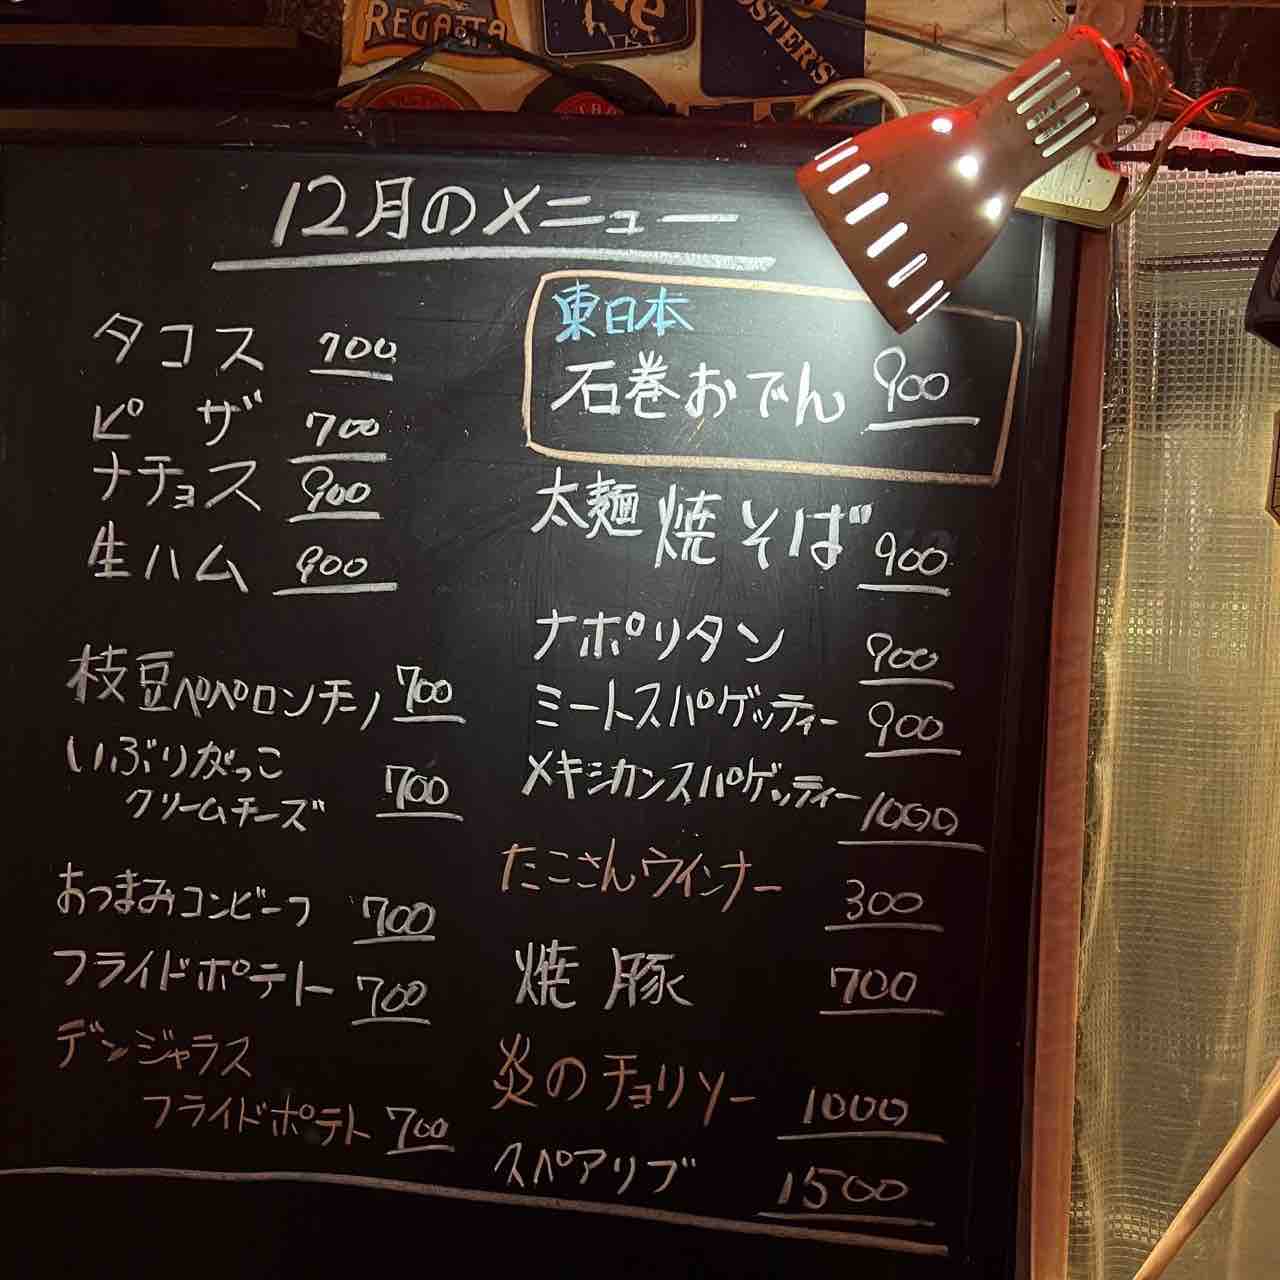 REGATTA
OSTER'S
12月のメニュー
タコス 700
ピザ 700
ナチョス 900
生ハム 900
枝豆ペペロンチーノ 700
いぶりがっこ
クリームチーズ 700
おつまみコンビーフ 700
フライドポテト 700
デンジャラス
フライドポテト 700
東日本
石巻おでん 900
太麺焼そば 900
ナポリタン 900
ミートスパゲッティー 900
メキシカンスパゲッティー 1000
たこさんウインナー 300
焼豚 700
炎のチョリソー 1000
スペアリブ 1500